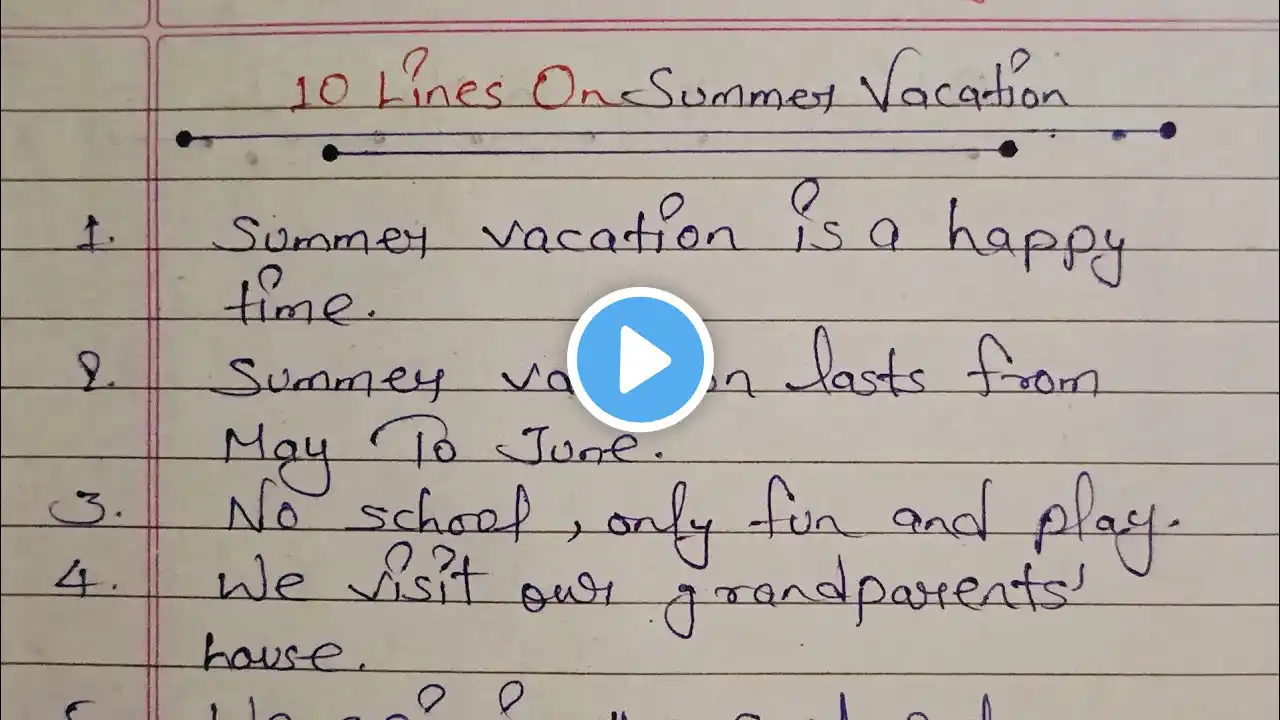 10 Lines On Summer Vacation
1. Summer vacation is a happy
time.
2. Summer lasts from
May To June.
3. No school, only fun and play.
4. We visit our grandparents'
house.